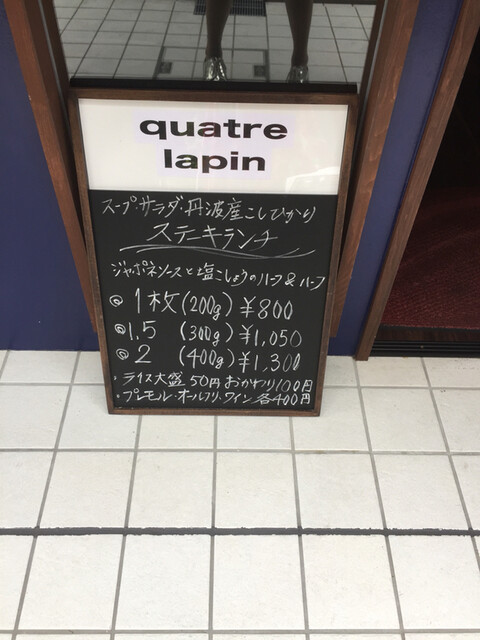 quatre
lapin
スープ・サラダ・丹波産こしひかり
ステーキランチ
ジャポネソースと塩こしょうのハーフ&ハーフ
◎ 1枚(200g) ¥800
◎ 1.5 (300g) ¥1,050
◎ 2 (400g) ¥1,300
・ライス大盛 50円 おかわり100円
・プレモル・オールフリ・ワイン 各400円